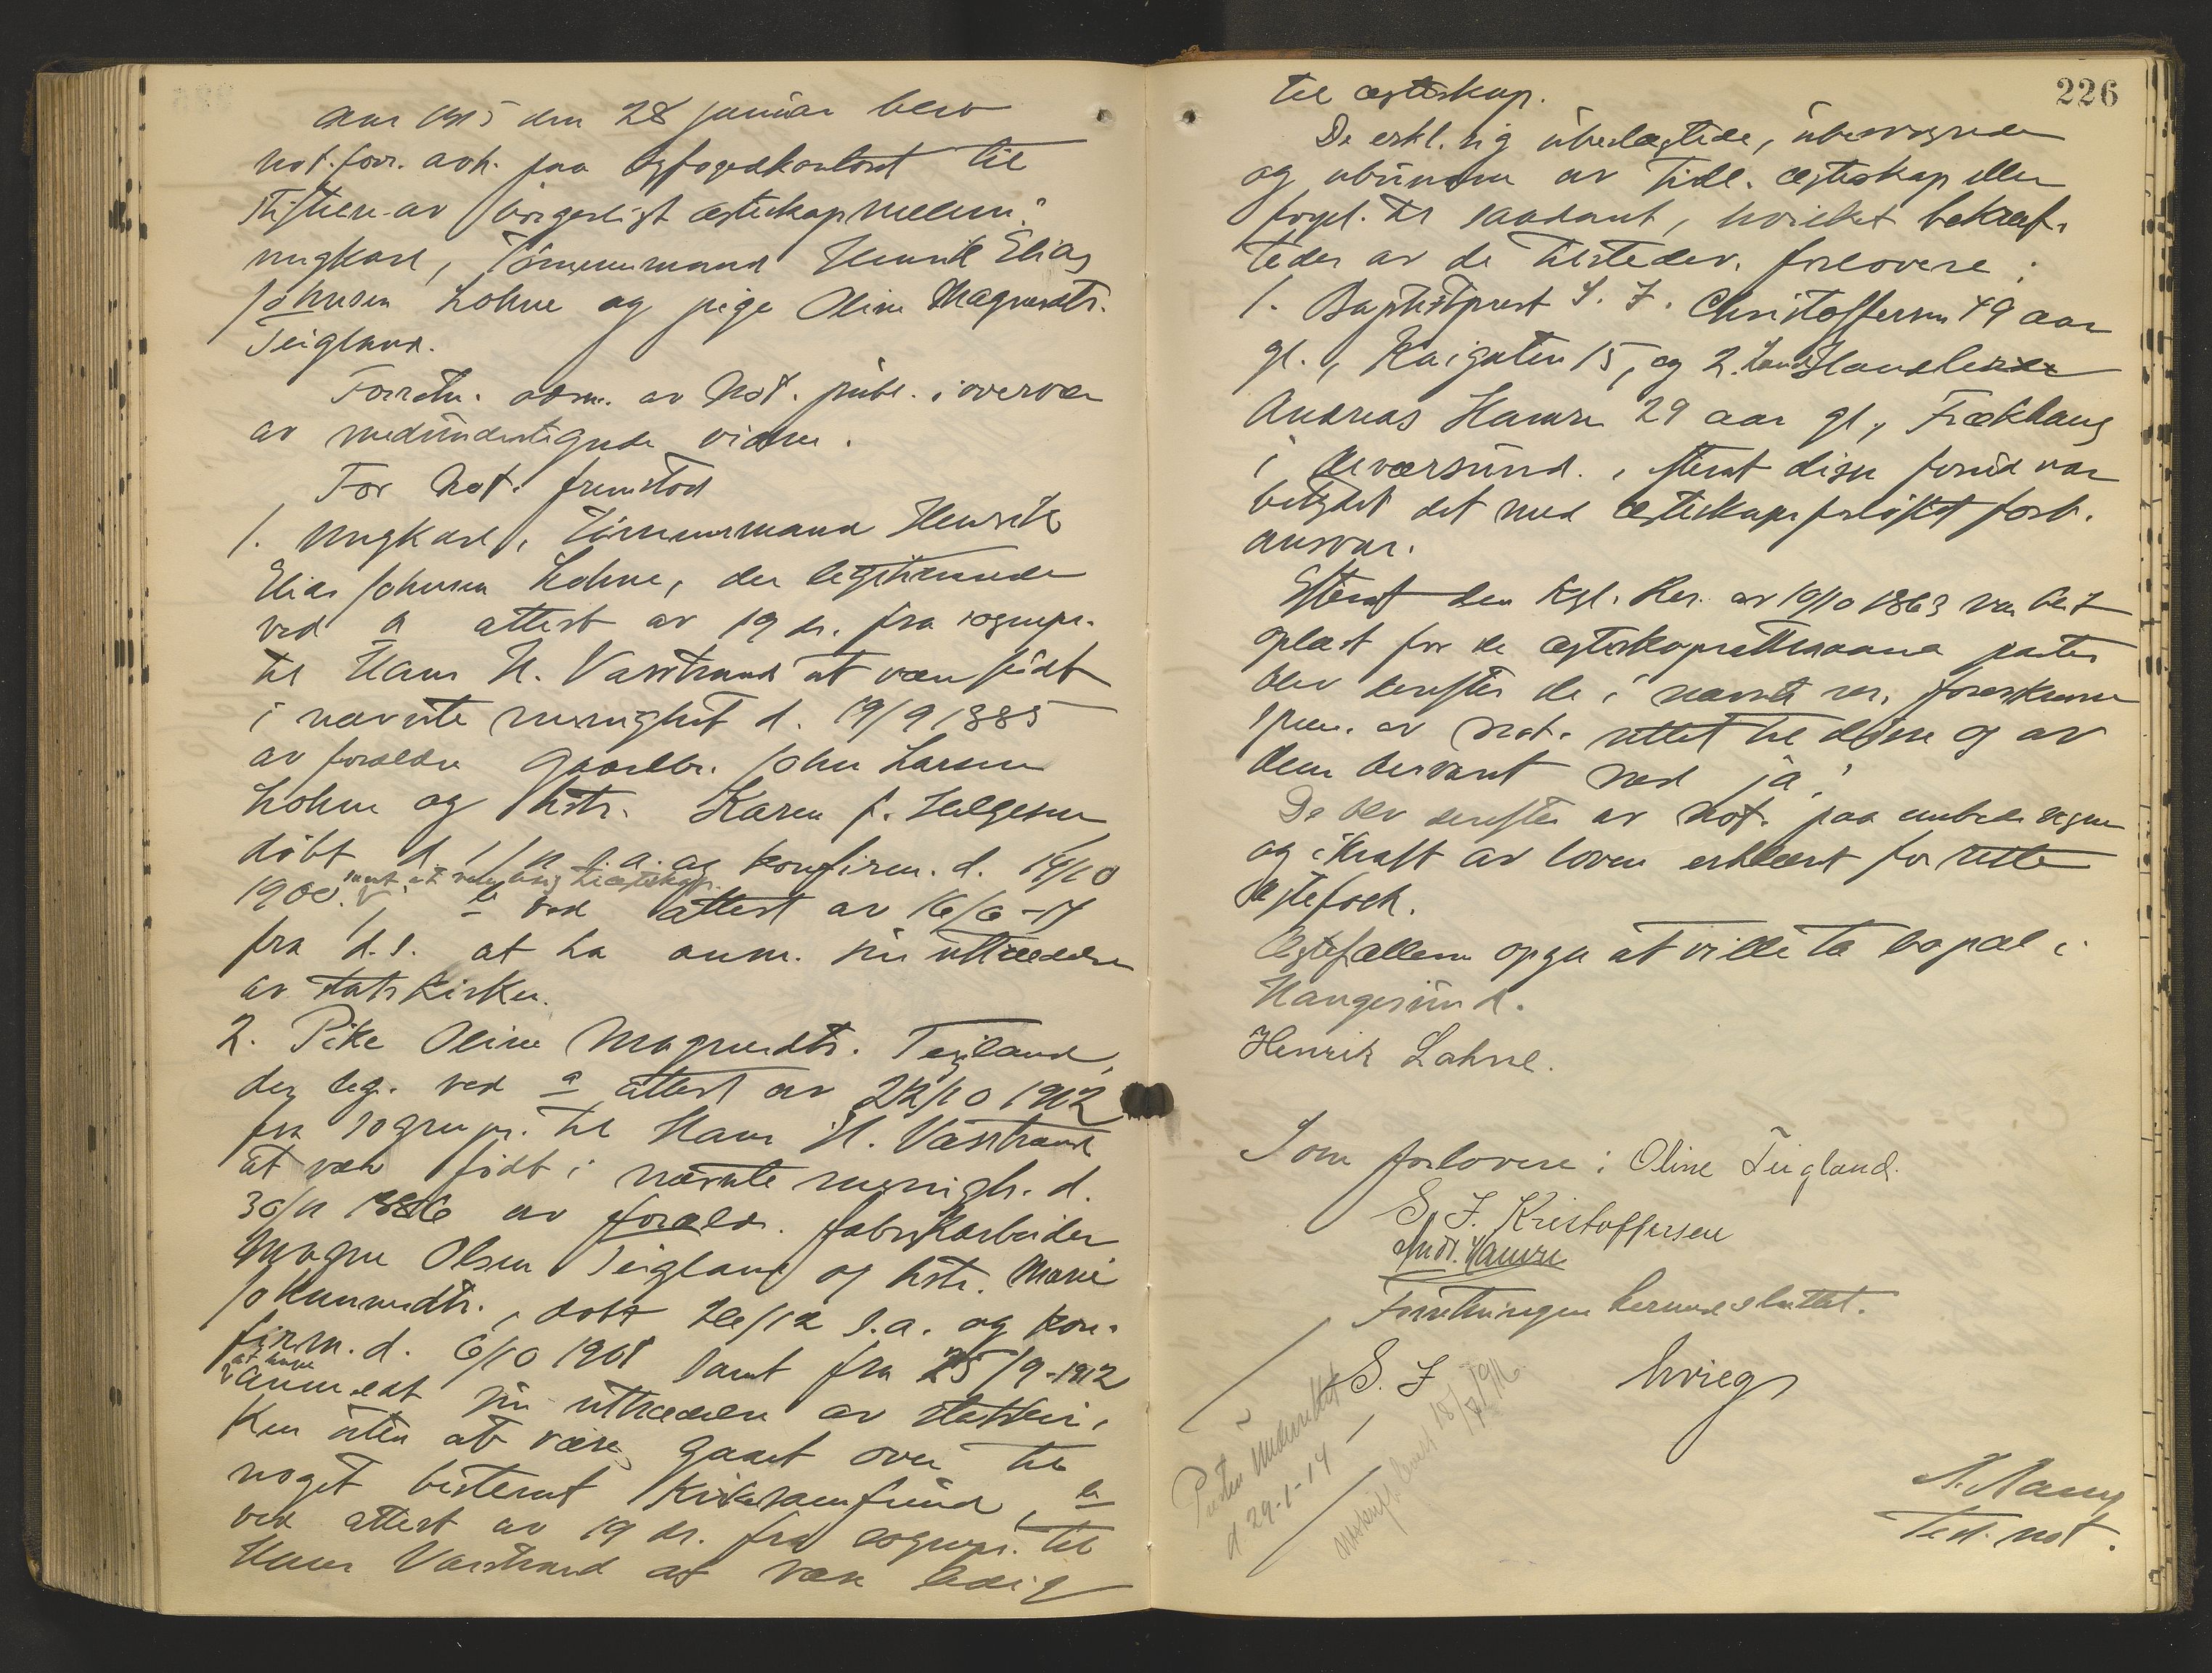 Aar 1915 den 28 januar blev
not. forr. avh. paa byfogedkontoret til
stiftelse av borgerligt egteskap mellem:
ungkarl, Tømmermand Henrik Elias
Johnsen Lohne og pige Oline Magnesdtr.
Teigland.
Forretn. adm. av Not. publ. i overvær
av medundertegnede vidne.
For Not. fremstod
1. Ungkarl, Tømmermand Henrik
Elias Johnsen Lohne, der legitimerede
ved a attest av 19 ds. fra sognepr.
til Hans H. Vasstrand at være født
i nævnte menighet d. 19/9 1885
av forældre Gaardbr. John Larsen
Lohne og hstr. Karen f. Helgesen,
døbt d. 1/11 s.a. og konfirm. d. 14/10
samt at være ledig til egteskap.
1900. b ved attest av 16/6-14
fra d.s. at ha anm. sin uttrædelse
av statskirken.
2. Pike Oline Magnesdtr. Teigland,
der leg. ved a attest av 22/10 1912
fra sognepr. til Hans H. Vasstrand
at være født i nævnte menigh. d.
30/11 1886 av forældr. fabrikarbeider
Magne Olsen Teigland og hstr. Marie
Johannesdtr., døbt 26/12 s.a. og kon-
firm. d. 6/10 1901 samt fra 25/9-1912
at have
anmeldt sin uttrædelse av statskir-
ken uten at være gaaet over til
noget bestemt kirkesamfund, b
ved attest av 19 ds. fra sognepr. til
Hans Vasstrand at være ledig
226
til egteskap.
De erkl. sig ubeslægtede, ubesvogrede
og ubundne av tidl. egteskap eller
forpl. til saadant, hvilket bekræf-
tedes av de tilstedev. forlovere:
1. Baptistprest S. F. Christoffersen 49 aar
gl., Kaigaten 15, og 2. Landhandler
Andreas Hamre 29 aar gl., Trækhaug
i Alversund, efterat disse forud var
betydet det med egteskapsforløftet forb.
ansvar.
Efterat den Kgl. Res. av 10/10 1863 var blit
oplæst for de egteskapsattraaende parter
blev derefter de i nævnte res. foreskrevne
spm. av not. rettet til disse og av
dem besvart med ja!
De blev derefter av Not. paa embeds vegne
og i kraft av loven erklært for rette
egtefolk.
Egtefællene opga at ville ta bopæl i
Haugesund.
Henrik Lohne.
Som forlovere: Oline Teigland.
S. F. Kristoffersen
Andr. Hamre
Forretningen hermed sluttet.
S. F
Presten underrettet
d 29-1-14
avskrift levert 18/7 1916.
Test. not.